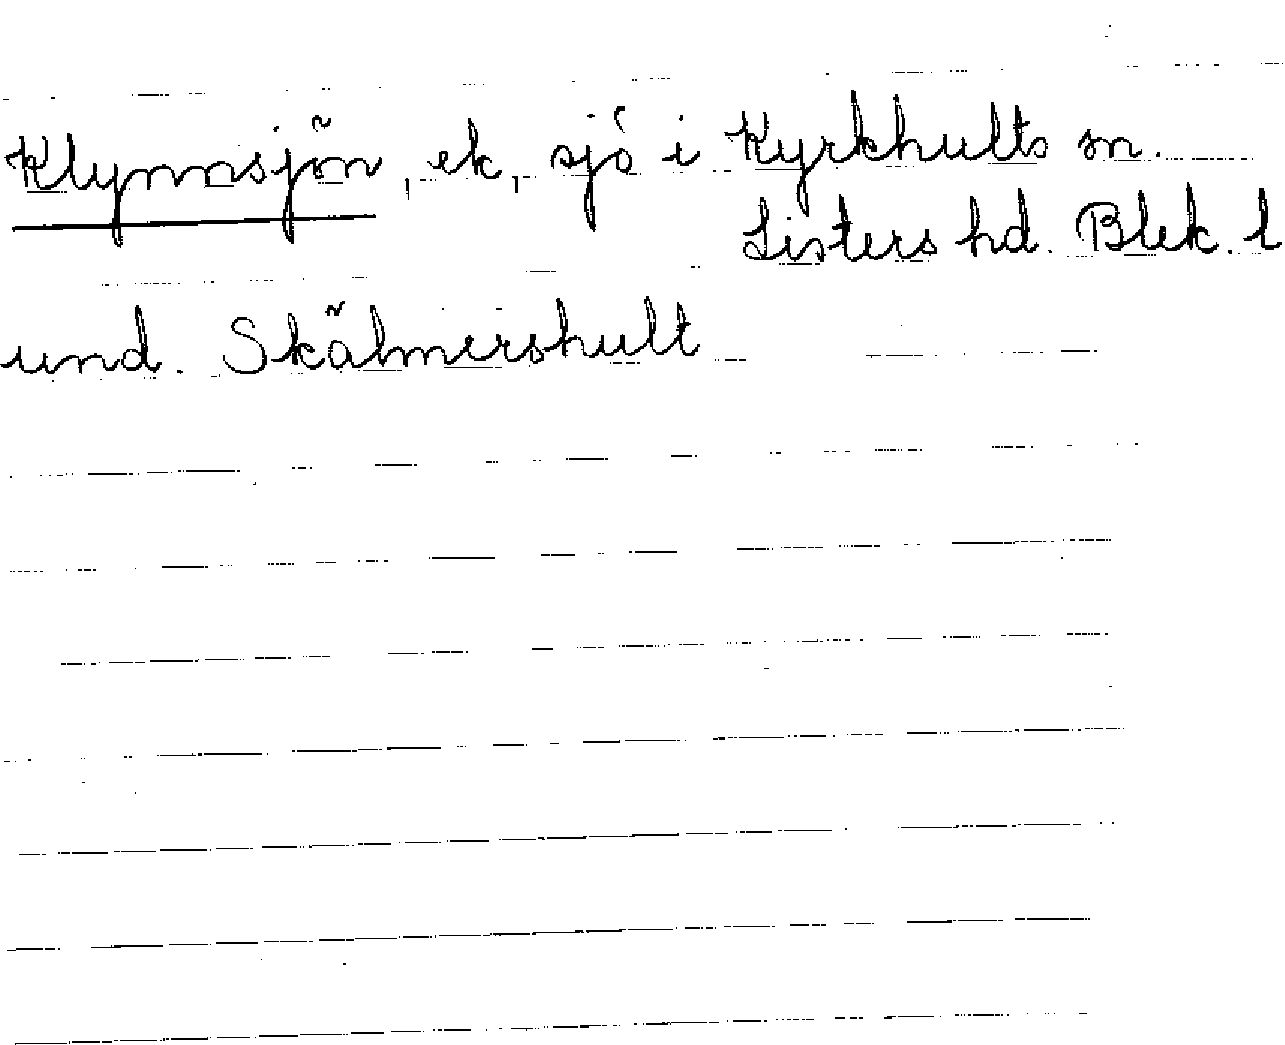 Klynnsjön, ek, sjö i Kyrkhults sn.
Listers hd. Blek. l
und. Skälmershult